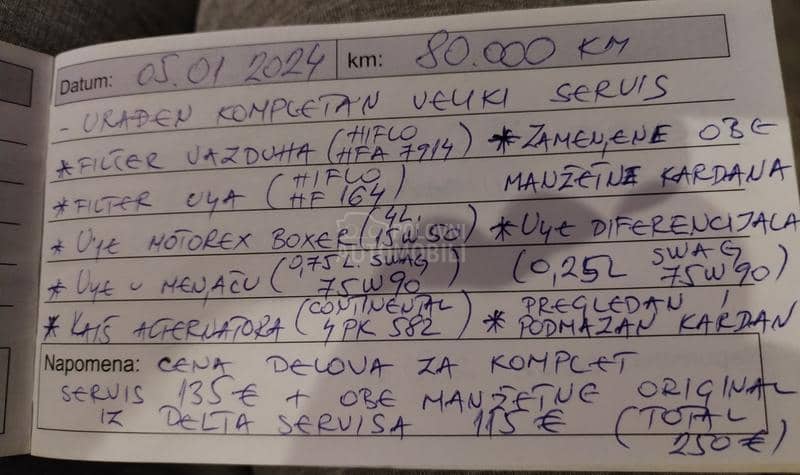 Datum: 05.01 2024 km: 80.000 KM
- URAĐEN KOMPLETAN VELIKI SERVIS
* FILTER VAZDUHA (HIFLO HFA 7914)
* ZAMENJENE OBE MANŽETNE KARDANA
* FILTER ULJA (HIFLO HF 164)
* ULJE MOTOREX BOXER (4L. 15W50)
* ULJE DIFERENCIJALA (0,25L SWAG 75W90)
* ULJE U MENJAČU (0,75L. SWAG 75W90)
* KAIŠ ALTERNATORA (CONTINENTAL 4PK 582)
* PREGLEDAN I PODMAZAN KARDAN
Napomena: CENA DELOVA ZA KOMPLET
SERVIS 135€ + OBE MANŽETNE ORIGINAL
IZ DELTA SERVISA 115€ (TOTAL 250€)
POLOVNI AUTOMOBILI